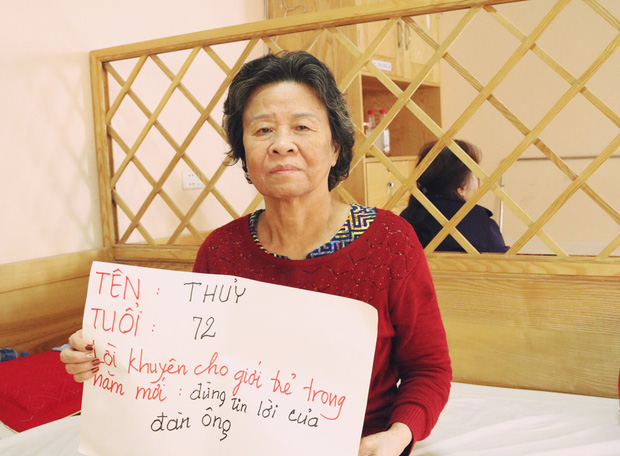 TÊN : THUỶ
TUỔI : 72
Lời khuyên cho giới trẻ trong
năm mới : đừng tin lời của
đàn ông